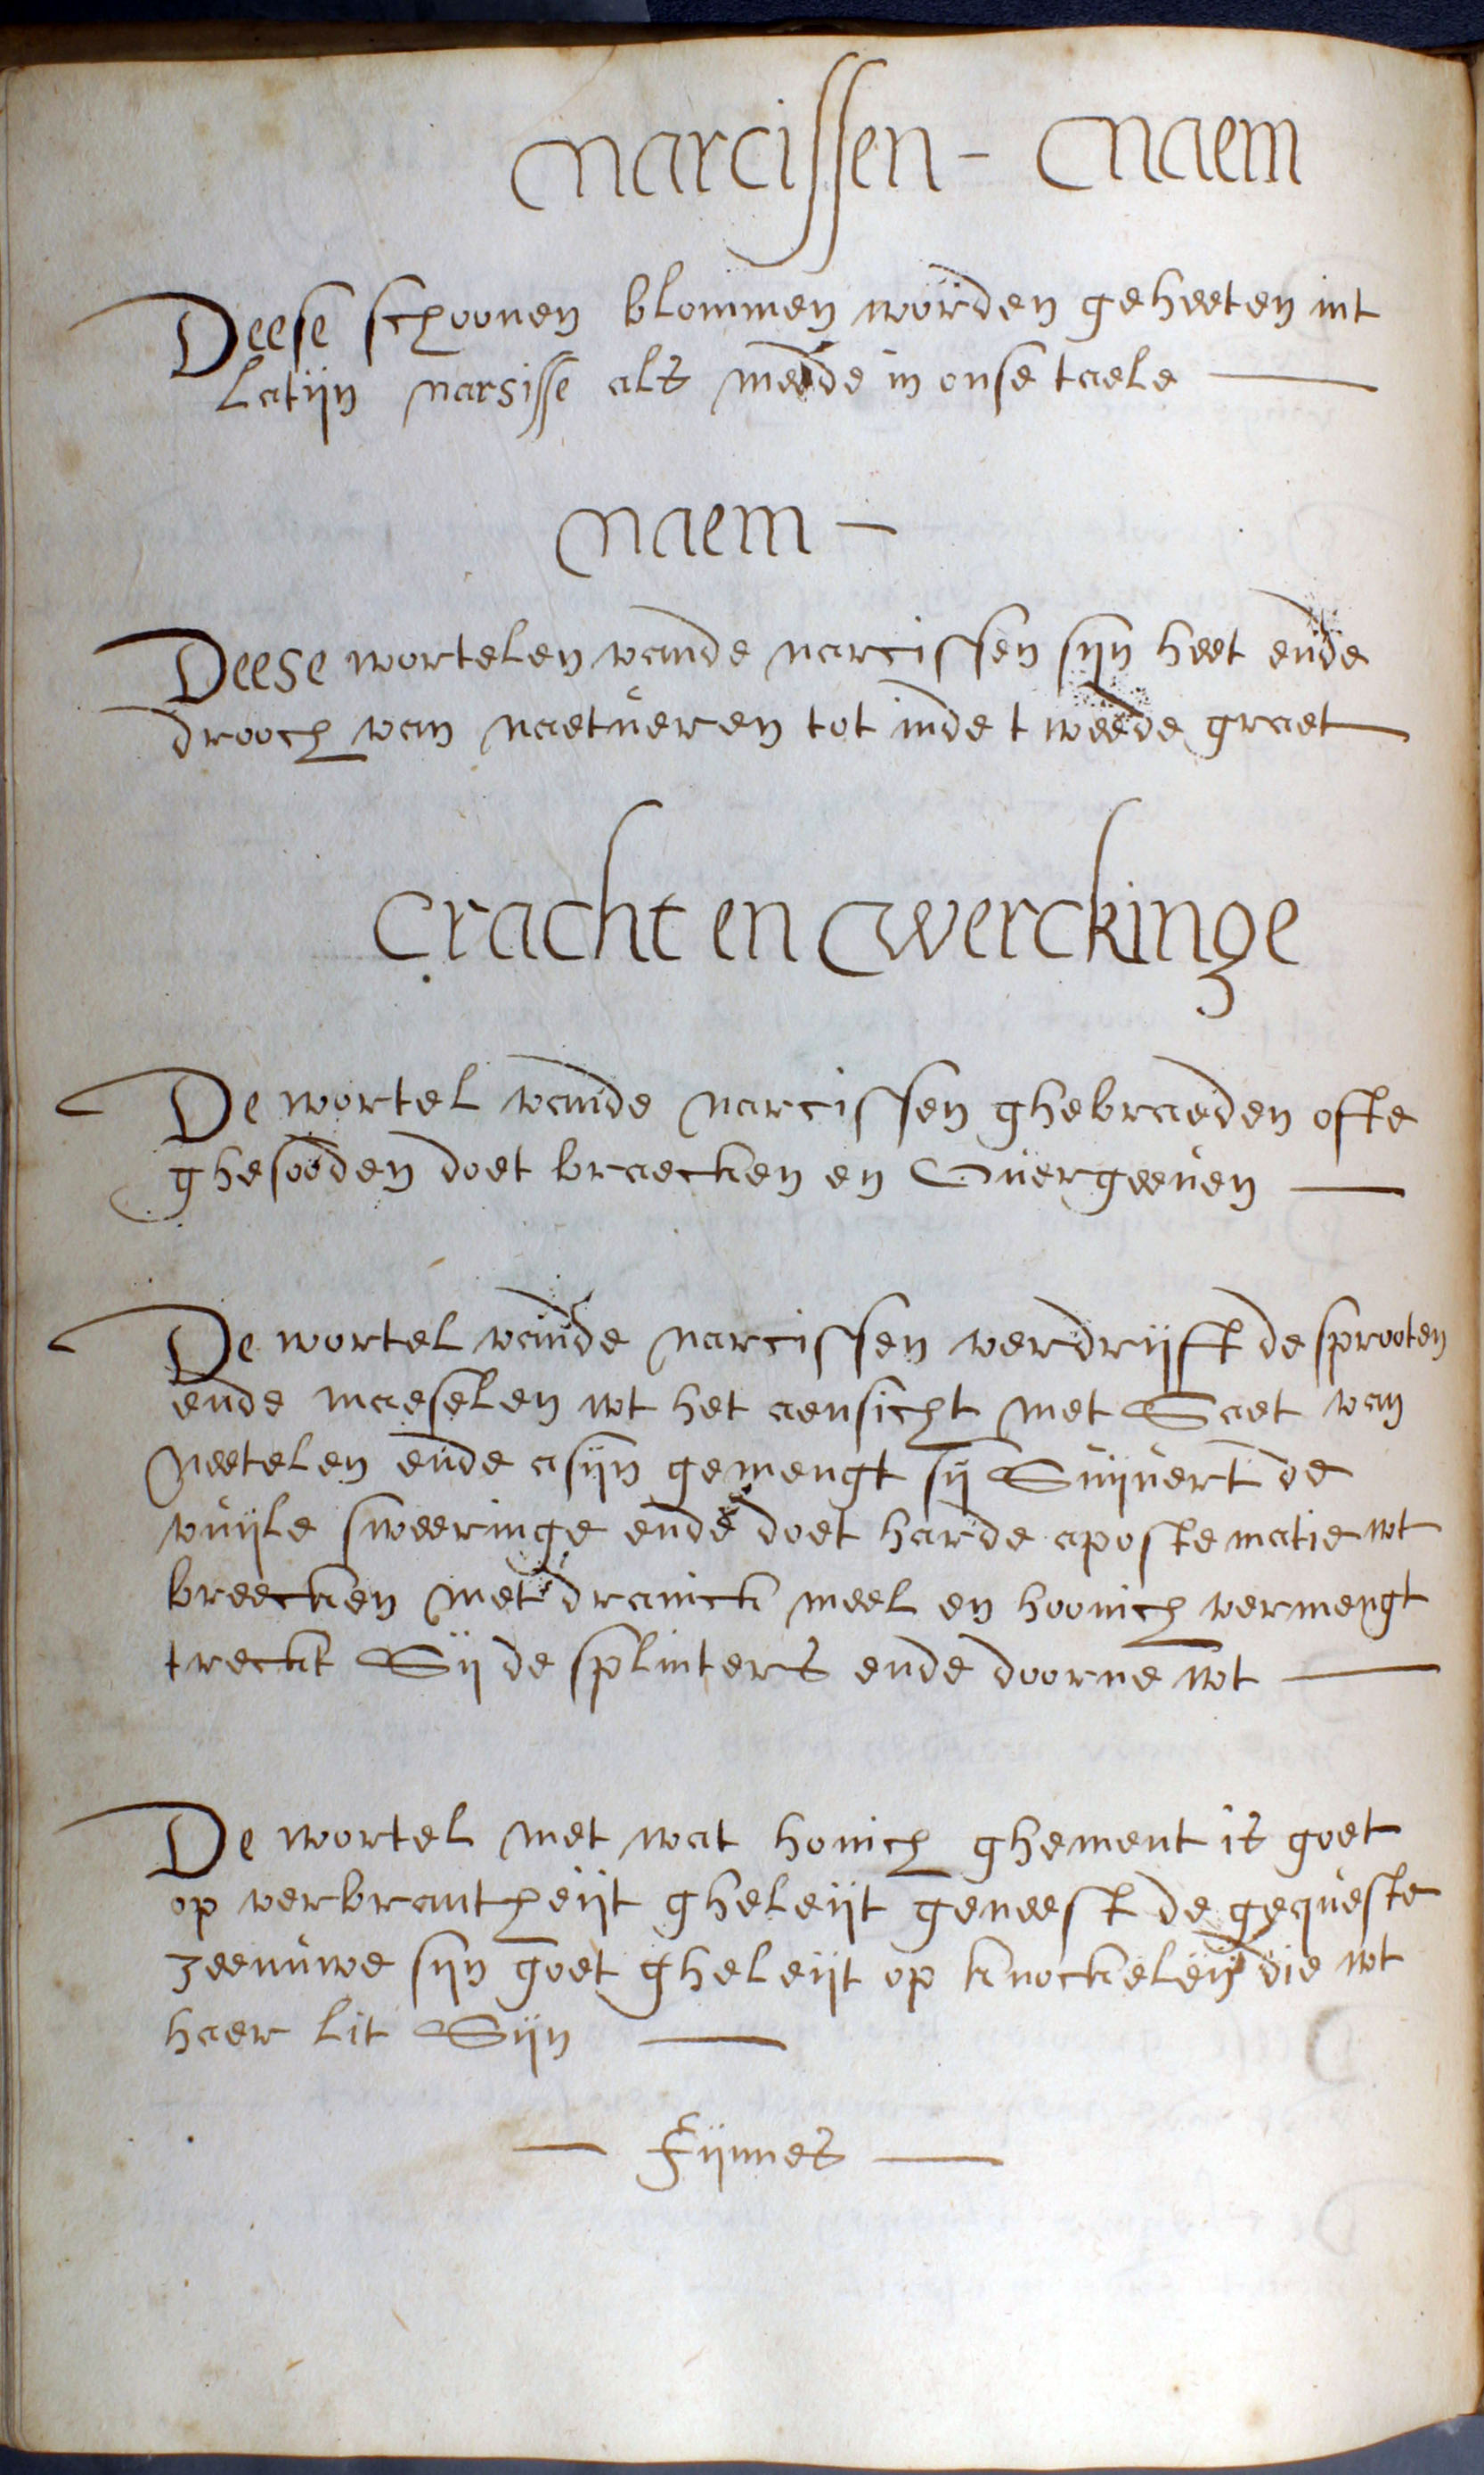 Narcissen - Naem
Deese schoonen blommen worden geheeten int
Latijn narsisse als meede in onse taele
Naem -
Deese wortelen vande narcissen sijn heet ende
drooch van naetueren tot inde tweede graet
Cracht en Werckinge
De wortel vande narcissen ghebraeden ofte
ghesooden doet braecken en Overgeeven
De wortel vande narcissen verdrijft de sprooten
ende maeselen wt het aensicht met Saet van
Neetelen ende asijn gemengt sij Suijvert de
vuijle sweeringe ende doet harde apostematie wt
breecken met dranck meel en hoonich vermengt
treckt Sij de splinters ende doorne wt
De wortel met wat honich ghement is goet
op verbrantheijt gheleijt geneest de gequeste
zeenuwe sijn goet gheleijt op knockelen die wt
haer lit Sijn
— Fijnnes —